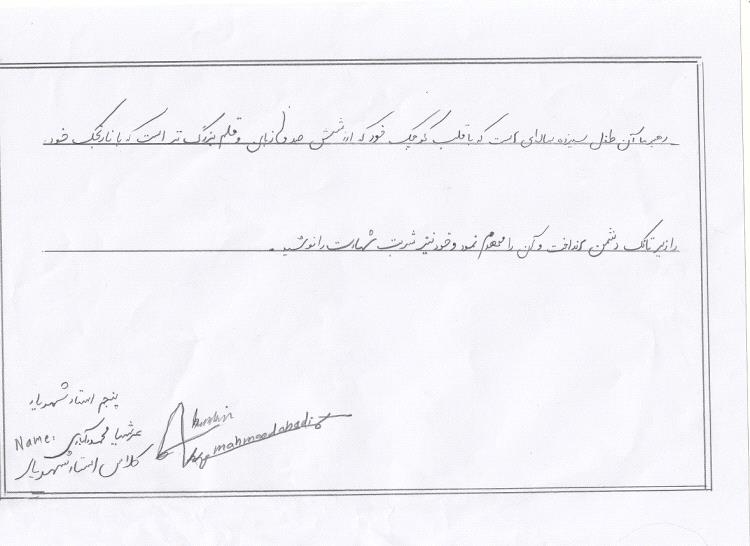 رهبر ما آن طفل سیزده ساله‌ای است که با قلب کوچک خود که ارزشش صد‌ها زبان و قلم بزرگ تر است که با نارنجک خود
را زیر تانک دشمن انداخت و آن را منهدم نمود و خود نیز شربت شهادت را نوشید.
پنجم استاد شهریار
Name: عرشیا محمودآبادی
کلاس استاد شهریار
mahmoodabadi